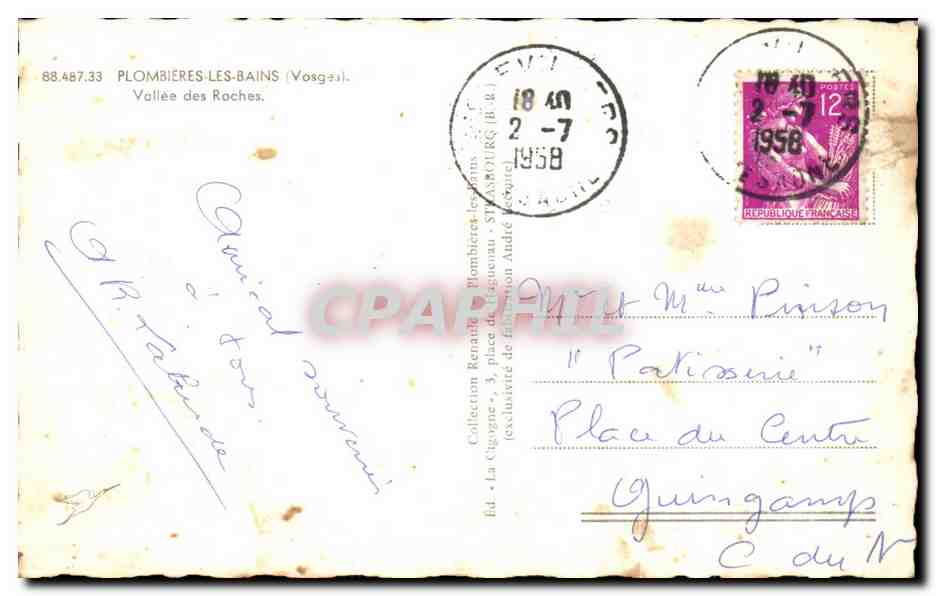 88.487.33 PLOMBIÈRES-LES-BAINS (Vosges).
Vallée des Roches.
Amical souvenir
à tous.
18 40
2 -7
1958
Collection Renauld Plombières-les-Bains
Ed « La Cigogne », 3, place de Haguenau - STRASBOURG (B.-R.)
(exclusivité de fabrication André Leconte)
18 40
2 -7
1958
POSTES
12F
REPUBLIQUE FRANÇAISE
CPAPHIL
Mr et Mme Pinson
"Patisserie"
Place du Centre
Guingamp
C du N